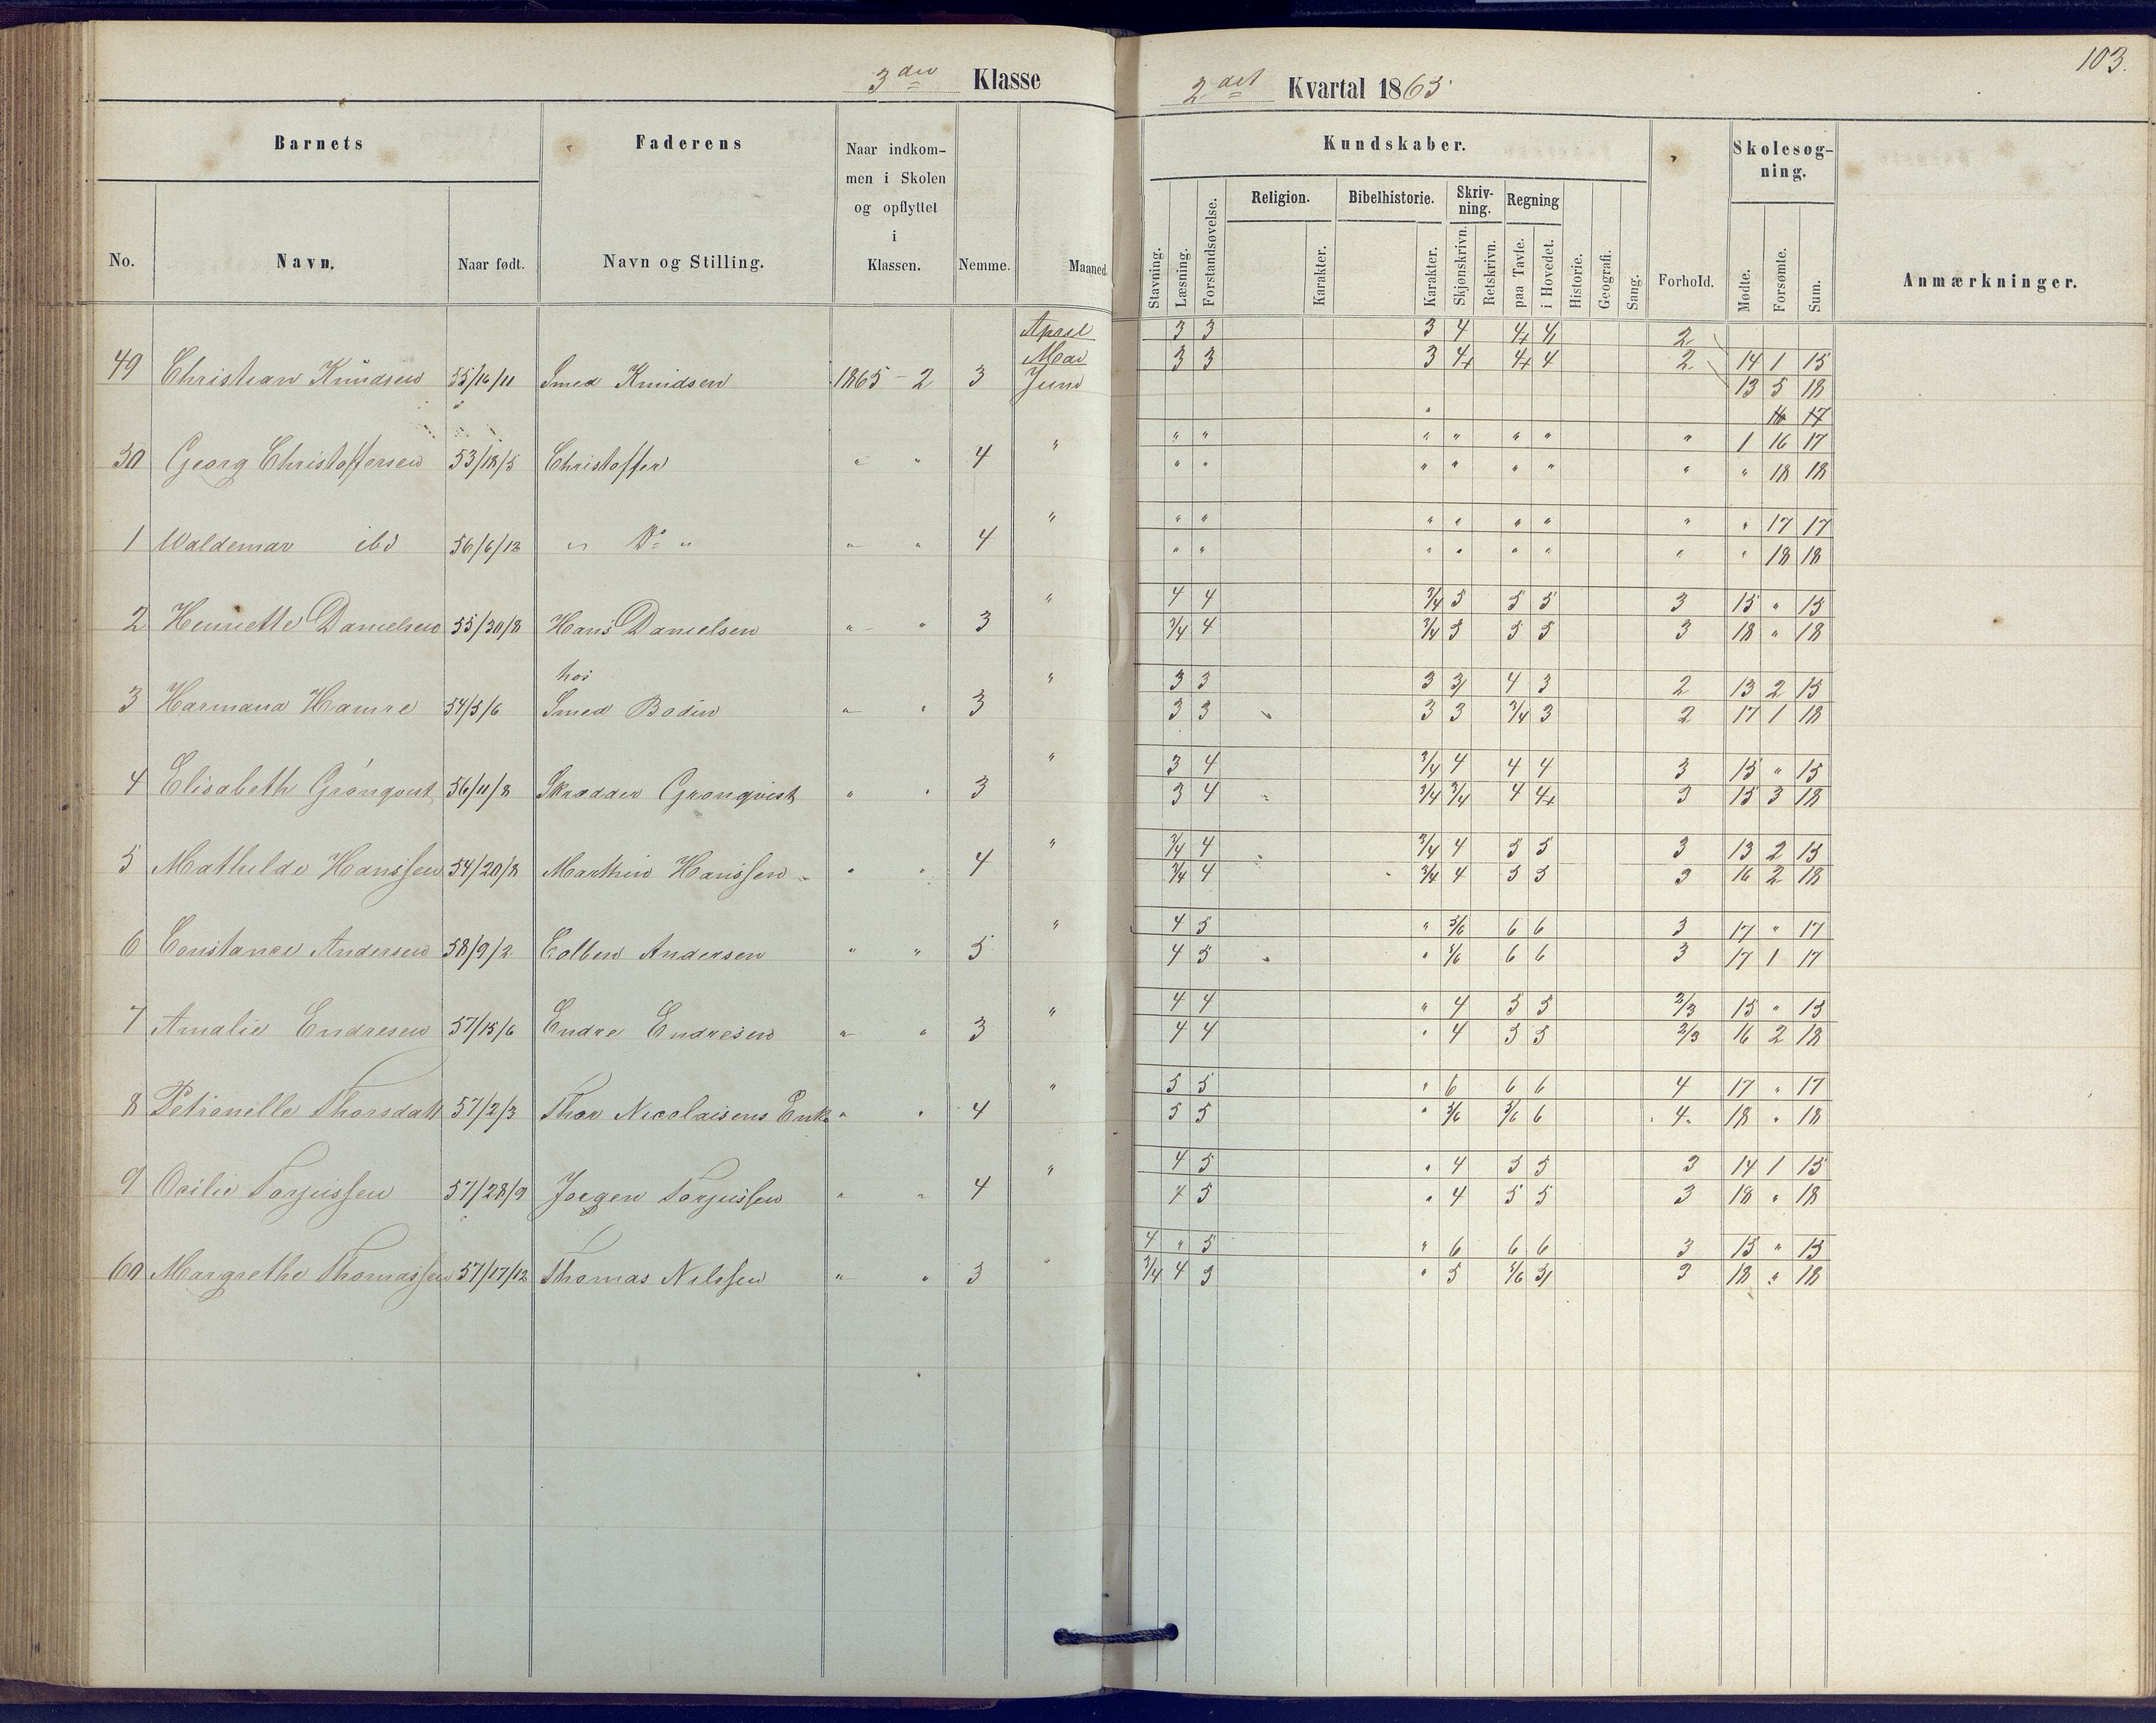 103.
3die Klasse
2det Kvartal 1865
Barnets Faderens Naar indkom-
men i Skolen
og opflyttet
i
Klassen.
No. Navn. Naar født. Navn og Stilling. Nemme. Maaned.
Kundskaber. Skolesøg-
ning.
Religion. Bibelhistorie. Skriv-
ning. Regning
Stavning. Læsning. Forstandsøvelse. Karakter. Karakter. Skjønskrivn. Retskrivn. paa Tavle. i Hovedet. Historie. Geografi. Sang. Forhold. Mødte. Forsømte. Sum. Anmærkninger.
April 3 3 3 4 4+ 4 2
Mai 3 3 3 4+ 4+ 4 2 14 1 15
49 Christian Knudsen 55/16/11 Smed Knudsen 1865 - 2 3 Juni 13 5 18
16 17
" " " " " " " 1 16 17
50 Georg Christoffersen 53/18/5 Christoffer " " 4 "
" " " " " " " " 18 18
" " " " " " " " 17 17
1 Waldemar ibd 56/6/12 " Do " " " 4 "
" " " " " " " " 18 18
4 4 3/4 5 5 5 3 15 " 15
2 Henriette Danielsen 55/30/8 Hans Danielsen " " 3 "
3/4 4 3/4 5 5 5 3 18 " 18
hos
3 3 3 3 4 3 2 13 2 15
3 Harmana Hamre 54/5/6 Smed Bodin " " 3 "
3 3 3 3 3/4 3 2 17 1 18
3 4 3/4 4 4 4 3 15 " 15
4 Elisabeth Grónqvist 56/11/8 Skrædder Gronqvist " " 3 "
3 4 3/4 3/4 4 4+ 3 15 3 18
3/4 4 3/4 4 5 5 3 13 2 15
5 Mathilde Hanssen 54/20/8 Marthin Hanssen " " 4 "
3/4 4 3/4 4 5 5 3 16 2 18
4 5 " 5/6 6 6 3 17 " 17
6 Constance Andersen 58/9/2 Colben Andersen " " 5 "
4 5 " 5/6 6 6 3 17 1 17
4 4 " 4 5 5 2/3 15 " 15
7 Amalie Endresen 57/15/6 Endre Endresen " " 3 "
4 4 " 4 5 5 2/3 16 2 18
5 5 " 6 6 6 4 17 " 17
8 Petronelle Thorsdatt 57/2/3 Thor Nicolaisens Enke " " 4 "
5 5 " 5/6 5/6 6 4 18 " 18
4 5 " 4 5 5 3 14 1 15
9 Ocilie Torjussen 57/28/9 Jorgen Torjussen " " 4 "
4 5 " 4 5 5 3 18 " 18
4 " 5 " 6 6 6 3 15 " 15
60 Margrethe Thomassen 57/17/12 Thomas Nilssen " " 3 "
3/4 4 5 " 5 5/6 5 3 18 " 18